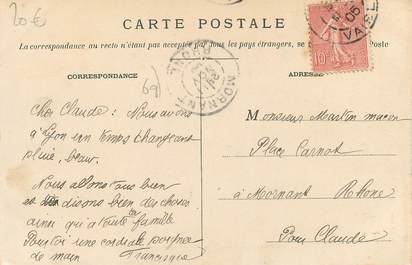 20 €
CARTE POSTALE
La correspondance au recto n'étant pas acceptée par tous les pays étrangers, se Poste
CORRESPONDANCE
ADRESSE
69
MORNANT
RHONE
05
10
Cher Claude : Nous avons
à Lyon un temps changeant
pluie, beau.
Nous allons tous bien
et disons bien des choses
ainsi qu'à toute la famille
Pour toi une cordiale poignée
de main Francisque
Monsieur Martin macon
Place Carnot
à Mornant Rhone
Pour Claude